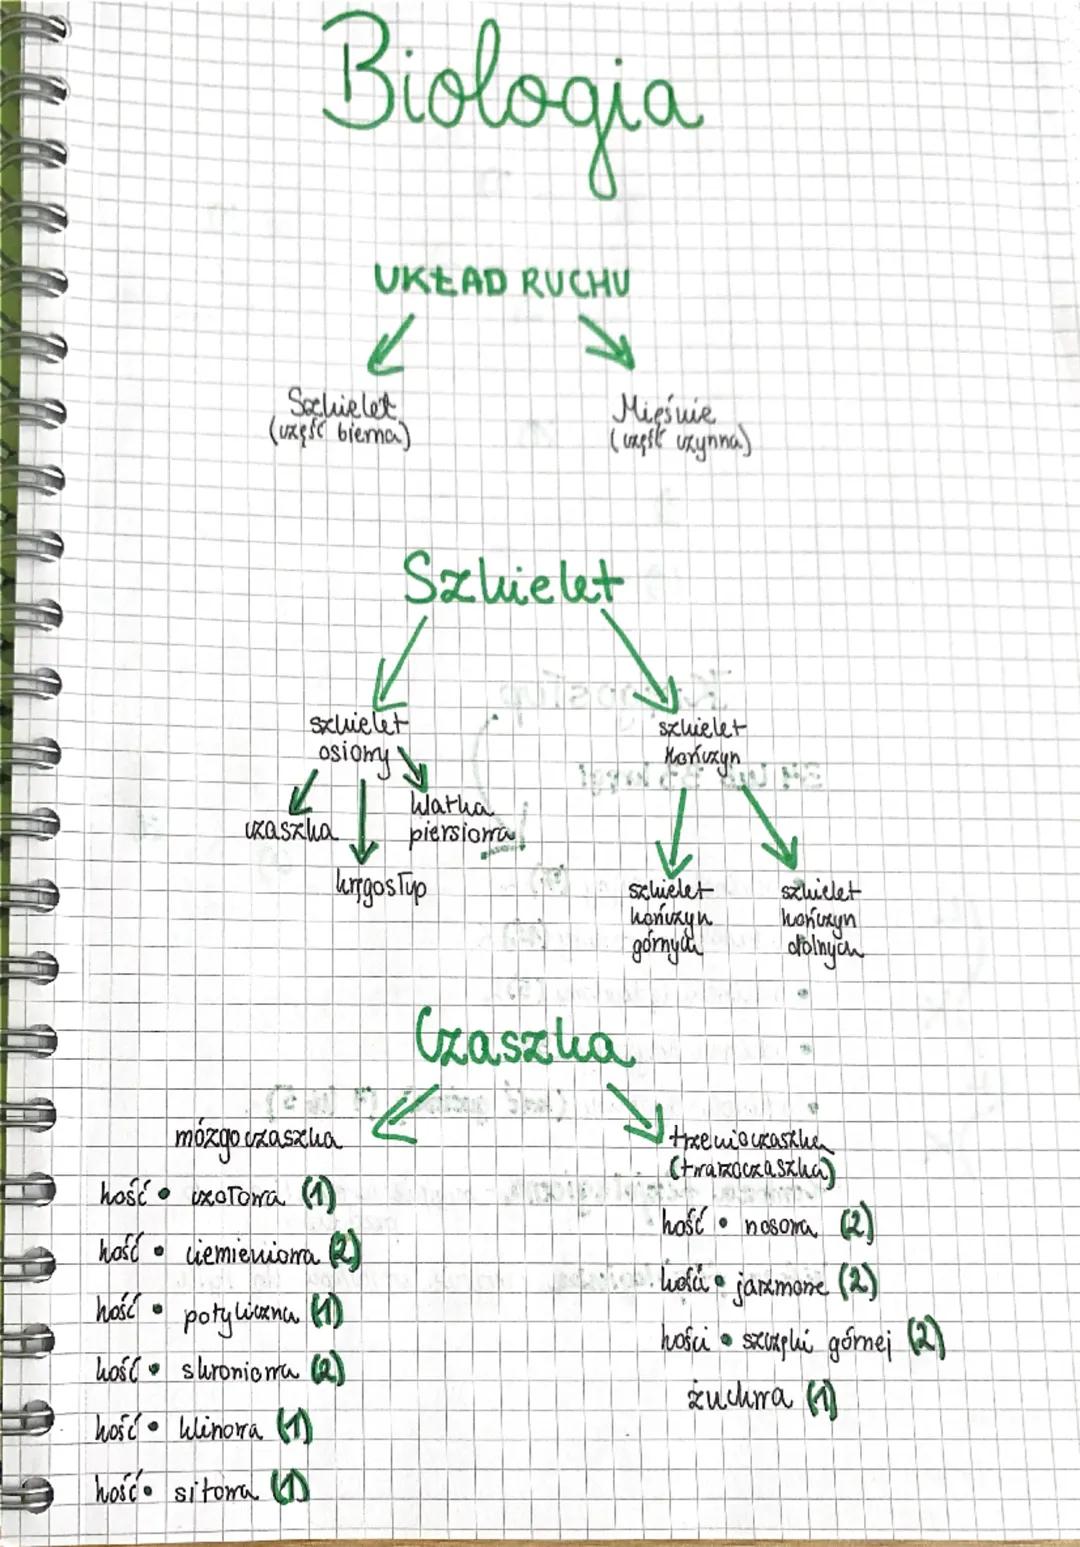 Biologia
UKŁAD RUCHU
Szkielet
(część bierna)
Mięśnie
(część czynna)
Szkielet
szkielet
osiowy
czaszka
kręgosłup
klatka
piersiowa
szkielet
kończyn
szkielet
kończyn
górnych
szkielet
kończyn
dolnych
Czaszka
mózgoczaszka
kość • czołowa (1)
kość • ciemieniowa (2)
kość • potyliczna (1)
kość • skroniowa (2)
kość • klinowa (1)
kość • sitowa (1)
trzewioczaszka
(twarzoczaszka)
kość • nosowa (2)
kości • jarzmowe (2)
kości • szczęki górnej (2)
żuchwa (1)